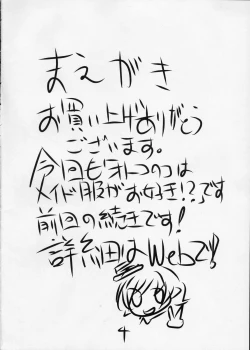 まえがき
お買い上げありがとう
ございます。
今回もオトコのコは
メイド服がお好き!?です
前回の続きです!
詳細はWebで!
4